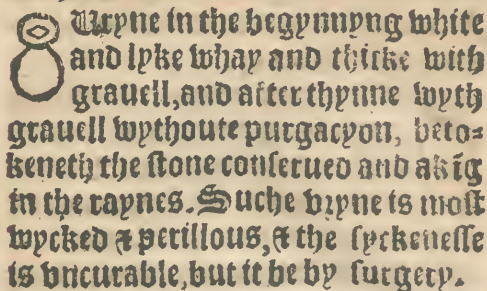 Uryne in the begynnyng white
and lyke whay and thicke with
grauell, and after thynne wyth
grauell wythoute purgacyon, beto=
keneth the stone conserued and akīg
in the raynes. Suche vryne is most
wycked & perillous, & the syckenesse
is vncurable, but it be by surgery.